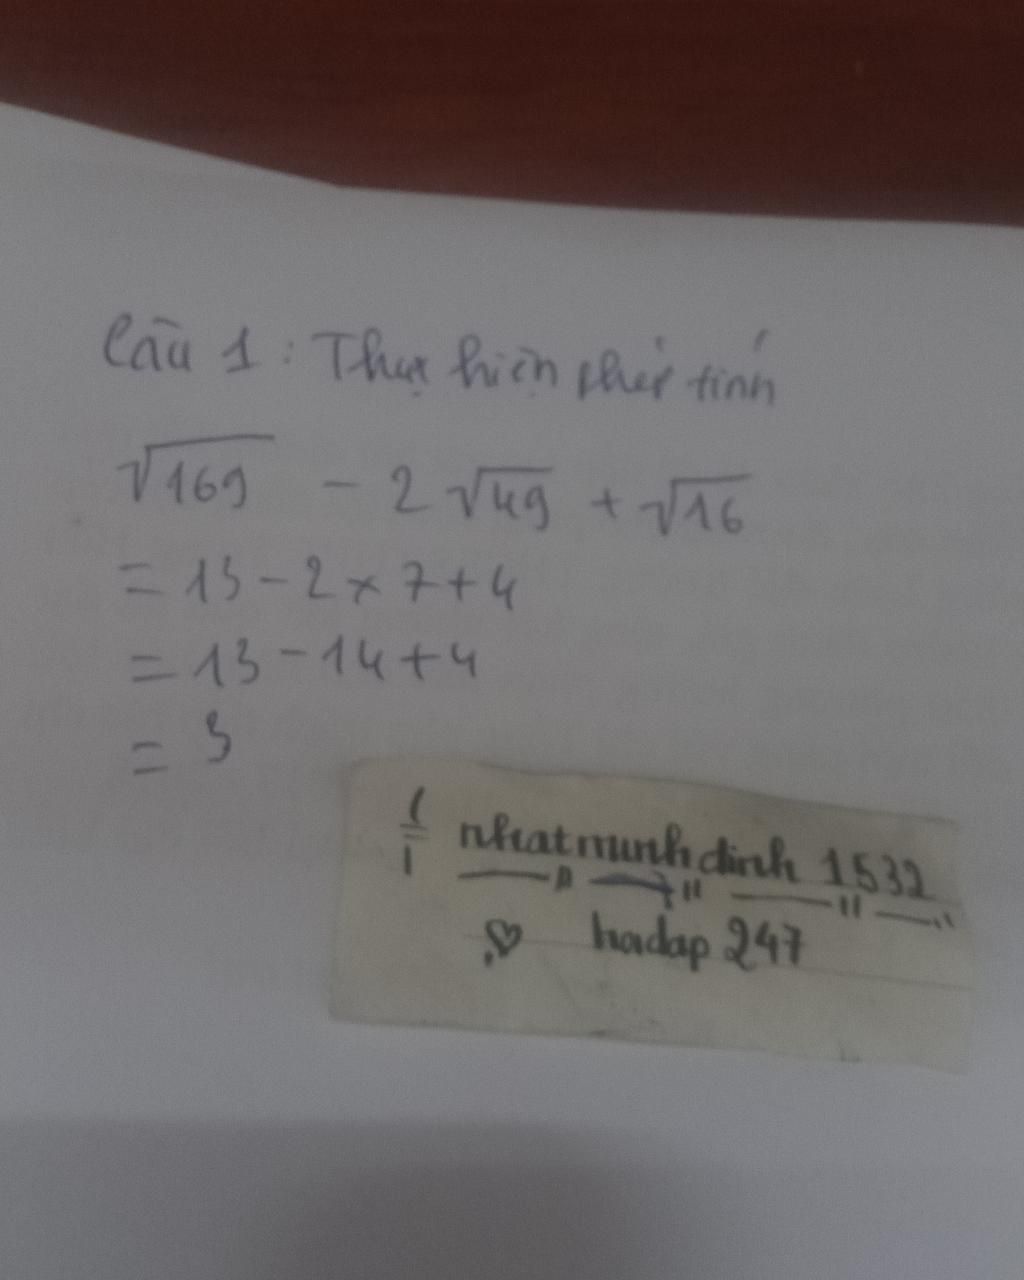 Câu 1: Thực hiện phép tính
√169 - 2√49 + √16
= 13 - 2 x 7 + 4
= 13 - 14 + 4
= 3
nhatminhdinh 1532
hadap 247